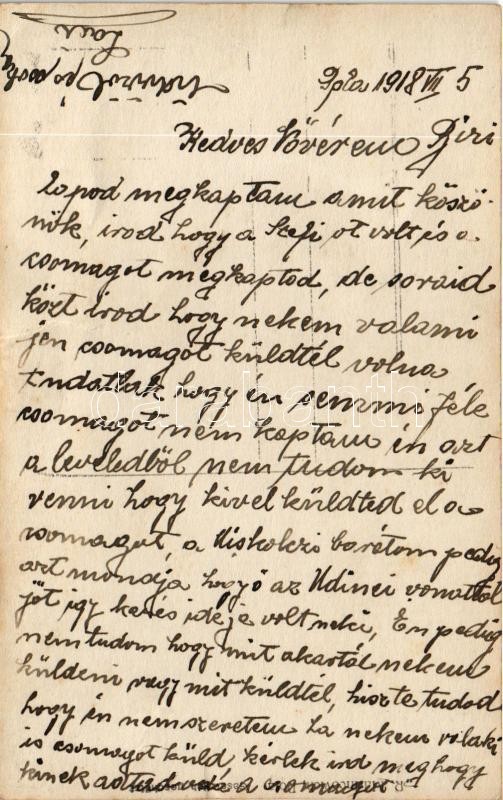 Pola 1918 VII 5
Kedves Nővérem Gizi
Lapod megkaptam amit köszö-
nök, irod hogy a Stefi ot volt és a
csomagot megkaptod, de soraid
közt irod hogy nekem valami
jen csomagot küldtél volna
tudatlak hogy én semmi féle
csomagot nem kaptam én azt
a leveledből nem tudom ki
venni hogy kivel küldted el a
csomagot, a Miskolczi barátom pedig
azt mondja hogy ő az Udinei vonattal
jöt igy kevés ideje volt neki, Én pedig
nem tudom hogy mit akartál nekem
küldeni vagy mit küldtél, hiszte tudod
hogy én nem szeretem ha nekem valaki
is csomagot küld kérlek ird meg hogy
kinek adtad oda a csomagot
Üdvözöl
Laci
darabanth